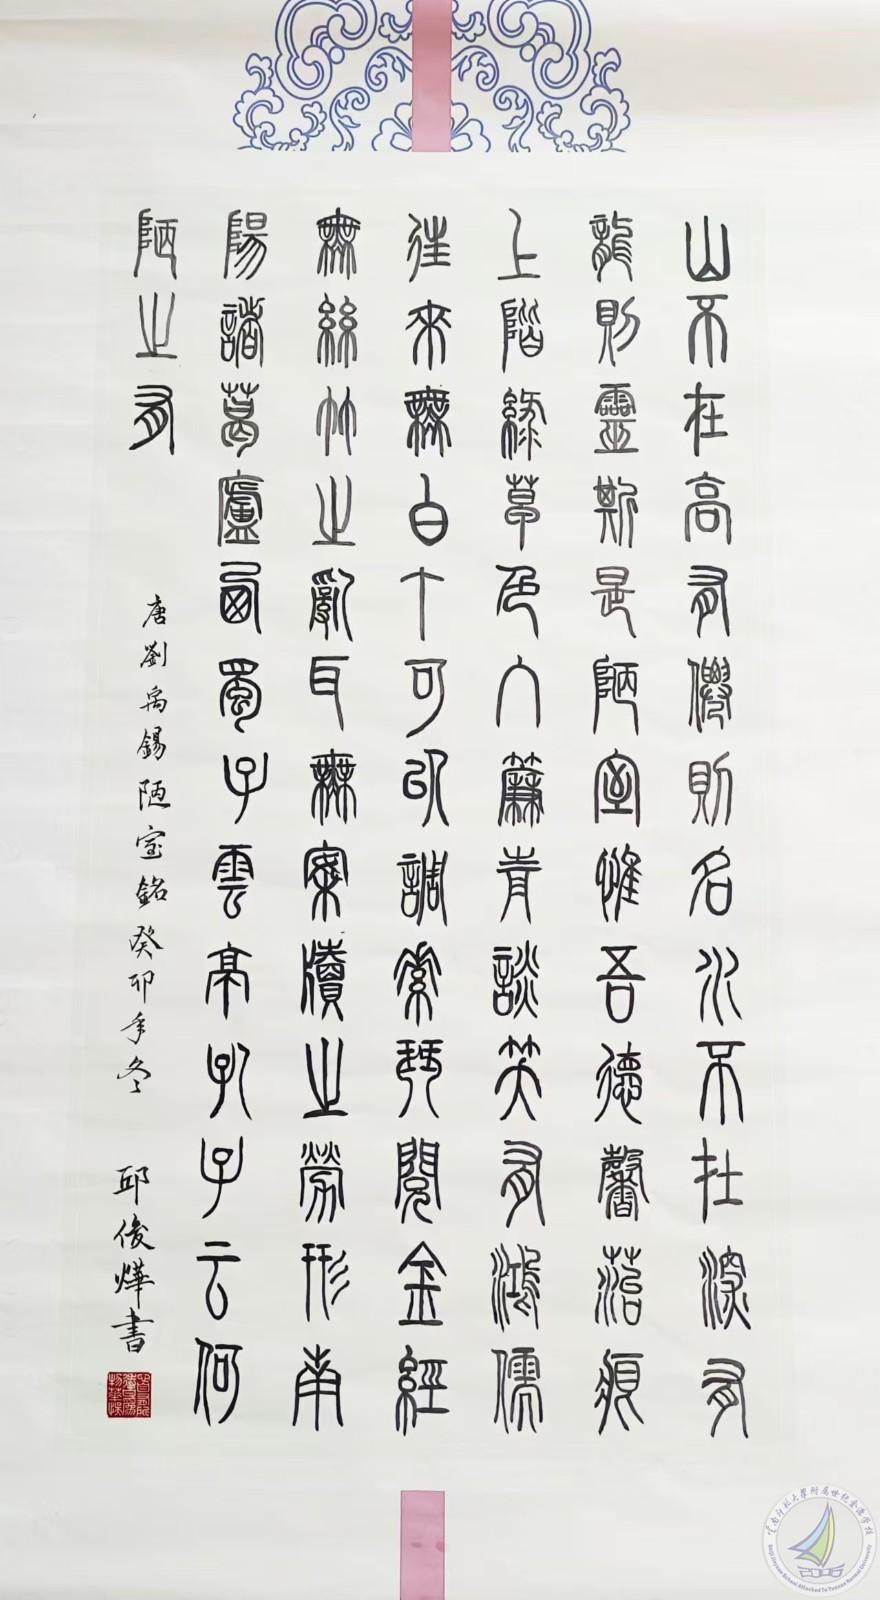 山不在高有僊則名水不在深有
龍則靈斯是陋室惟吾德馨菭痕
上階綠草色入簾青談笑有鴻儒
往來無白丁可以調素琴閱金經
無絲竹之亂耳無案牘之勞形南
陽諸葛廬西蜀子雲亭孔子云何
陋之有
唐劉禹錫陋室銘癸卯年冬
邱俊燁書
雲南師範大學附屬世紀金源學校
School Attached To Yunnan Normal University